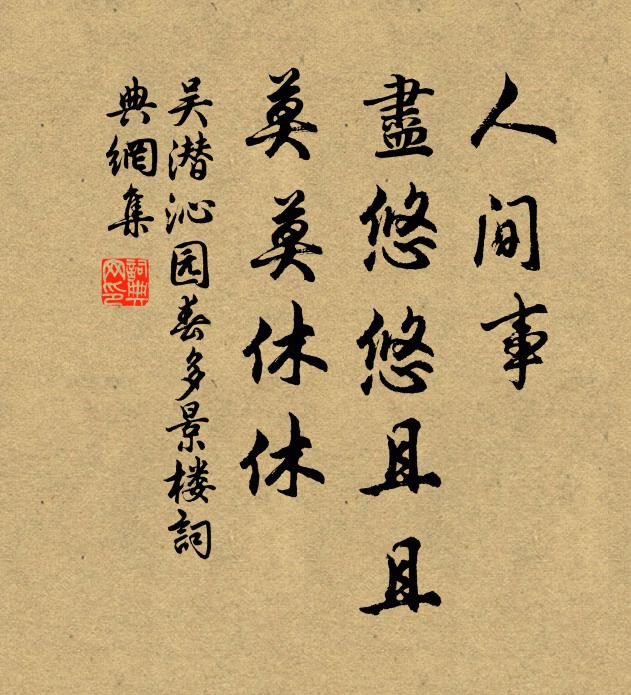 人间事
盡悠悠且且
莫莫休休
吴潜沁园春多景楼詞
典網集
詞典网印